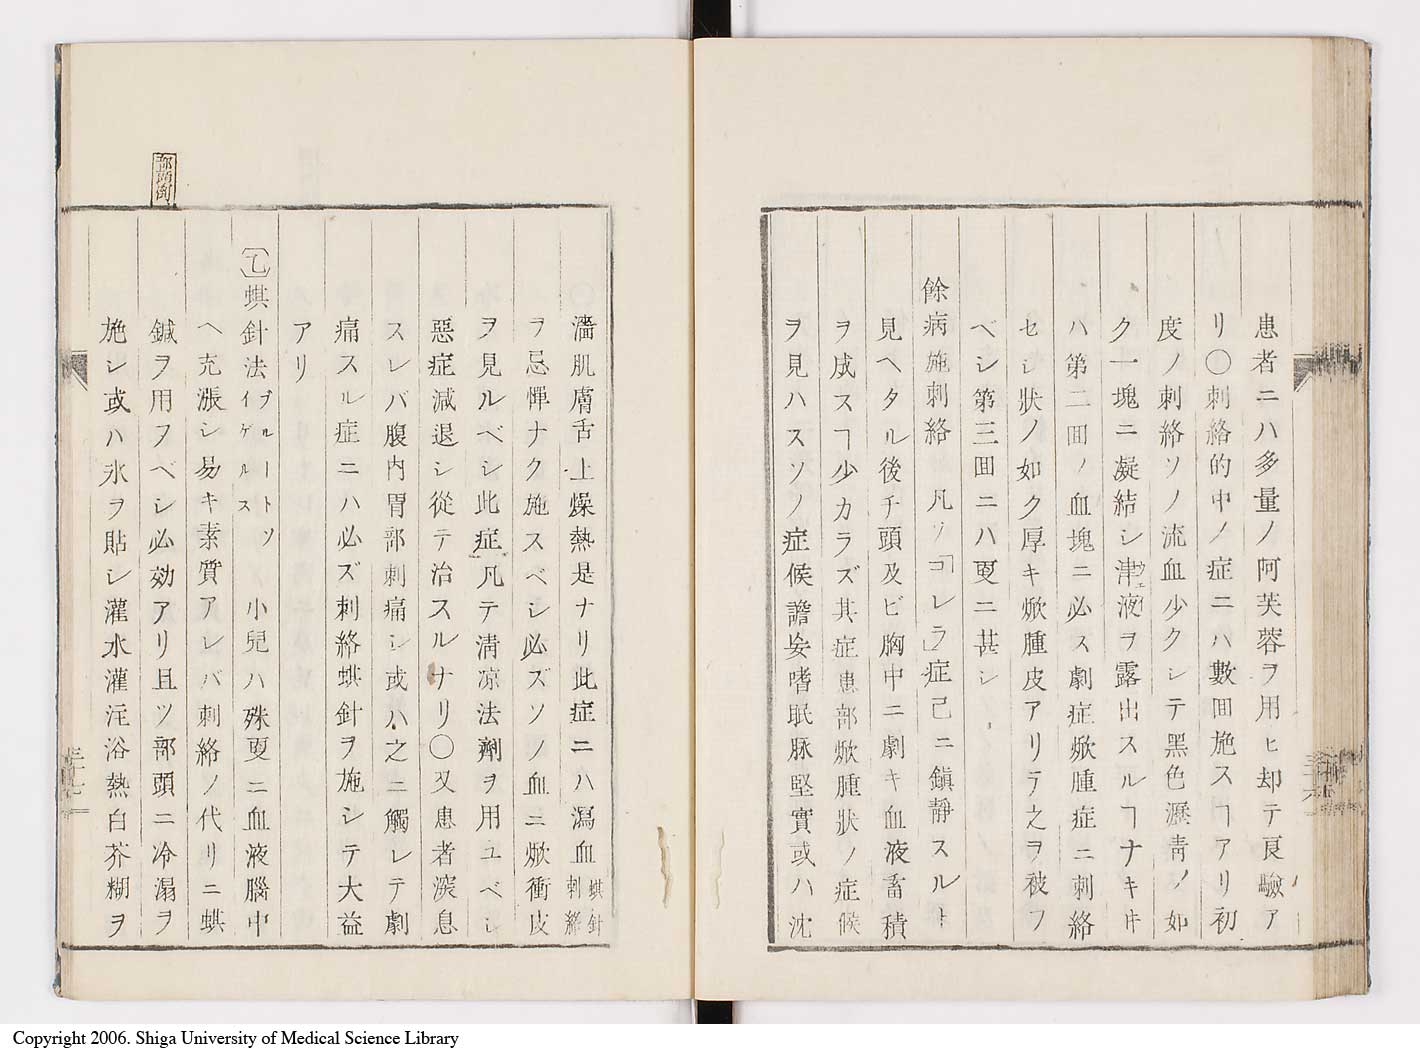 患者ニハ多量ノ阿芙蓉ヲ用ヒ却テ良驗ア
リ〇刺絡的中ノ症ニハ數囬施スヿアリ初
度ノ刺絡ソノ流血少クシテ黑色瀝青ノ如
ク一塊ニ凝結シ津液ヲ露出スルヿナキ㐧
ハ第二囬ノ血塊ニ必ス劇症焮腫症ニ刺絡
セシ狀ノ如ク厚キ焮腫皮アリテ之ヲ被フ
ベシ第三囬ニハ更ニ甚シ
餘病施刺絡 凡ソ「コレラ」症已ニ鎭靜スルト
見ヘタル後チ頭及ビ胸中ニ劇キ血液畜積
ヲ成スヿ少カラズ其症患部焮腫狀ノ症候
ヲ見ハスソノ症候譫妄嗜眠脉堅實或ハ沈
濇肌膚舌上燥熱是ナリ此症ニハ瀉血蜞針刺絡
ヲ忌憚ナク施スベシ必ズソノ血ニ焮衝皮
ヲ見ルベシ此症凡テ淸凉法劑ヲ用ユベシ
惡症減退シ從テ治スルナリ〇又患者深息
スレバ腹内胃部刺痛シ或ハ之ニ觸レテ劇
痛スル症ニハ必ズ刺絡蜞針ヲ施シテ大益
アリ
〔乙〕蜞針法ブルートソイゲルス 小兒ハ殊更ニ血液腦中
ヘ充漲シ易キ素質アレバ刺絡ノ代リニ蜞
鍼ヲ用ヲベシ必効アリ且ツ部頭ニ冷溻ヲ
施シ或ハ氷ヲ貼シ灌水灌注浴熱白芥糊ヲ
Copyright 2006. Shiga University of Medical Science Library